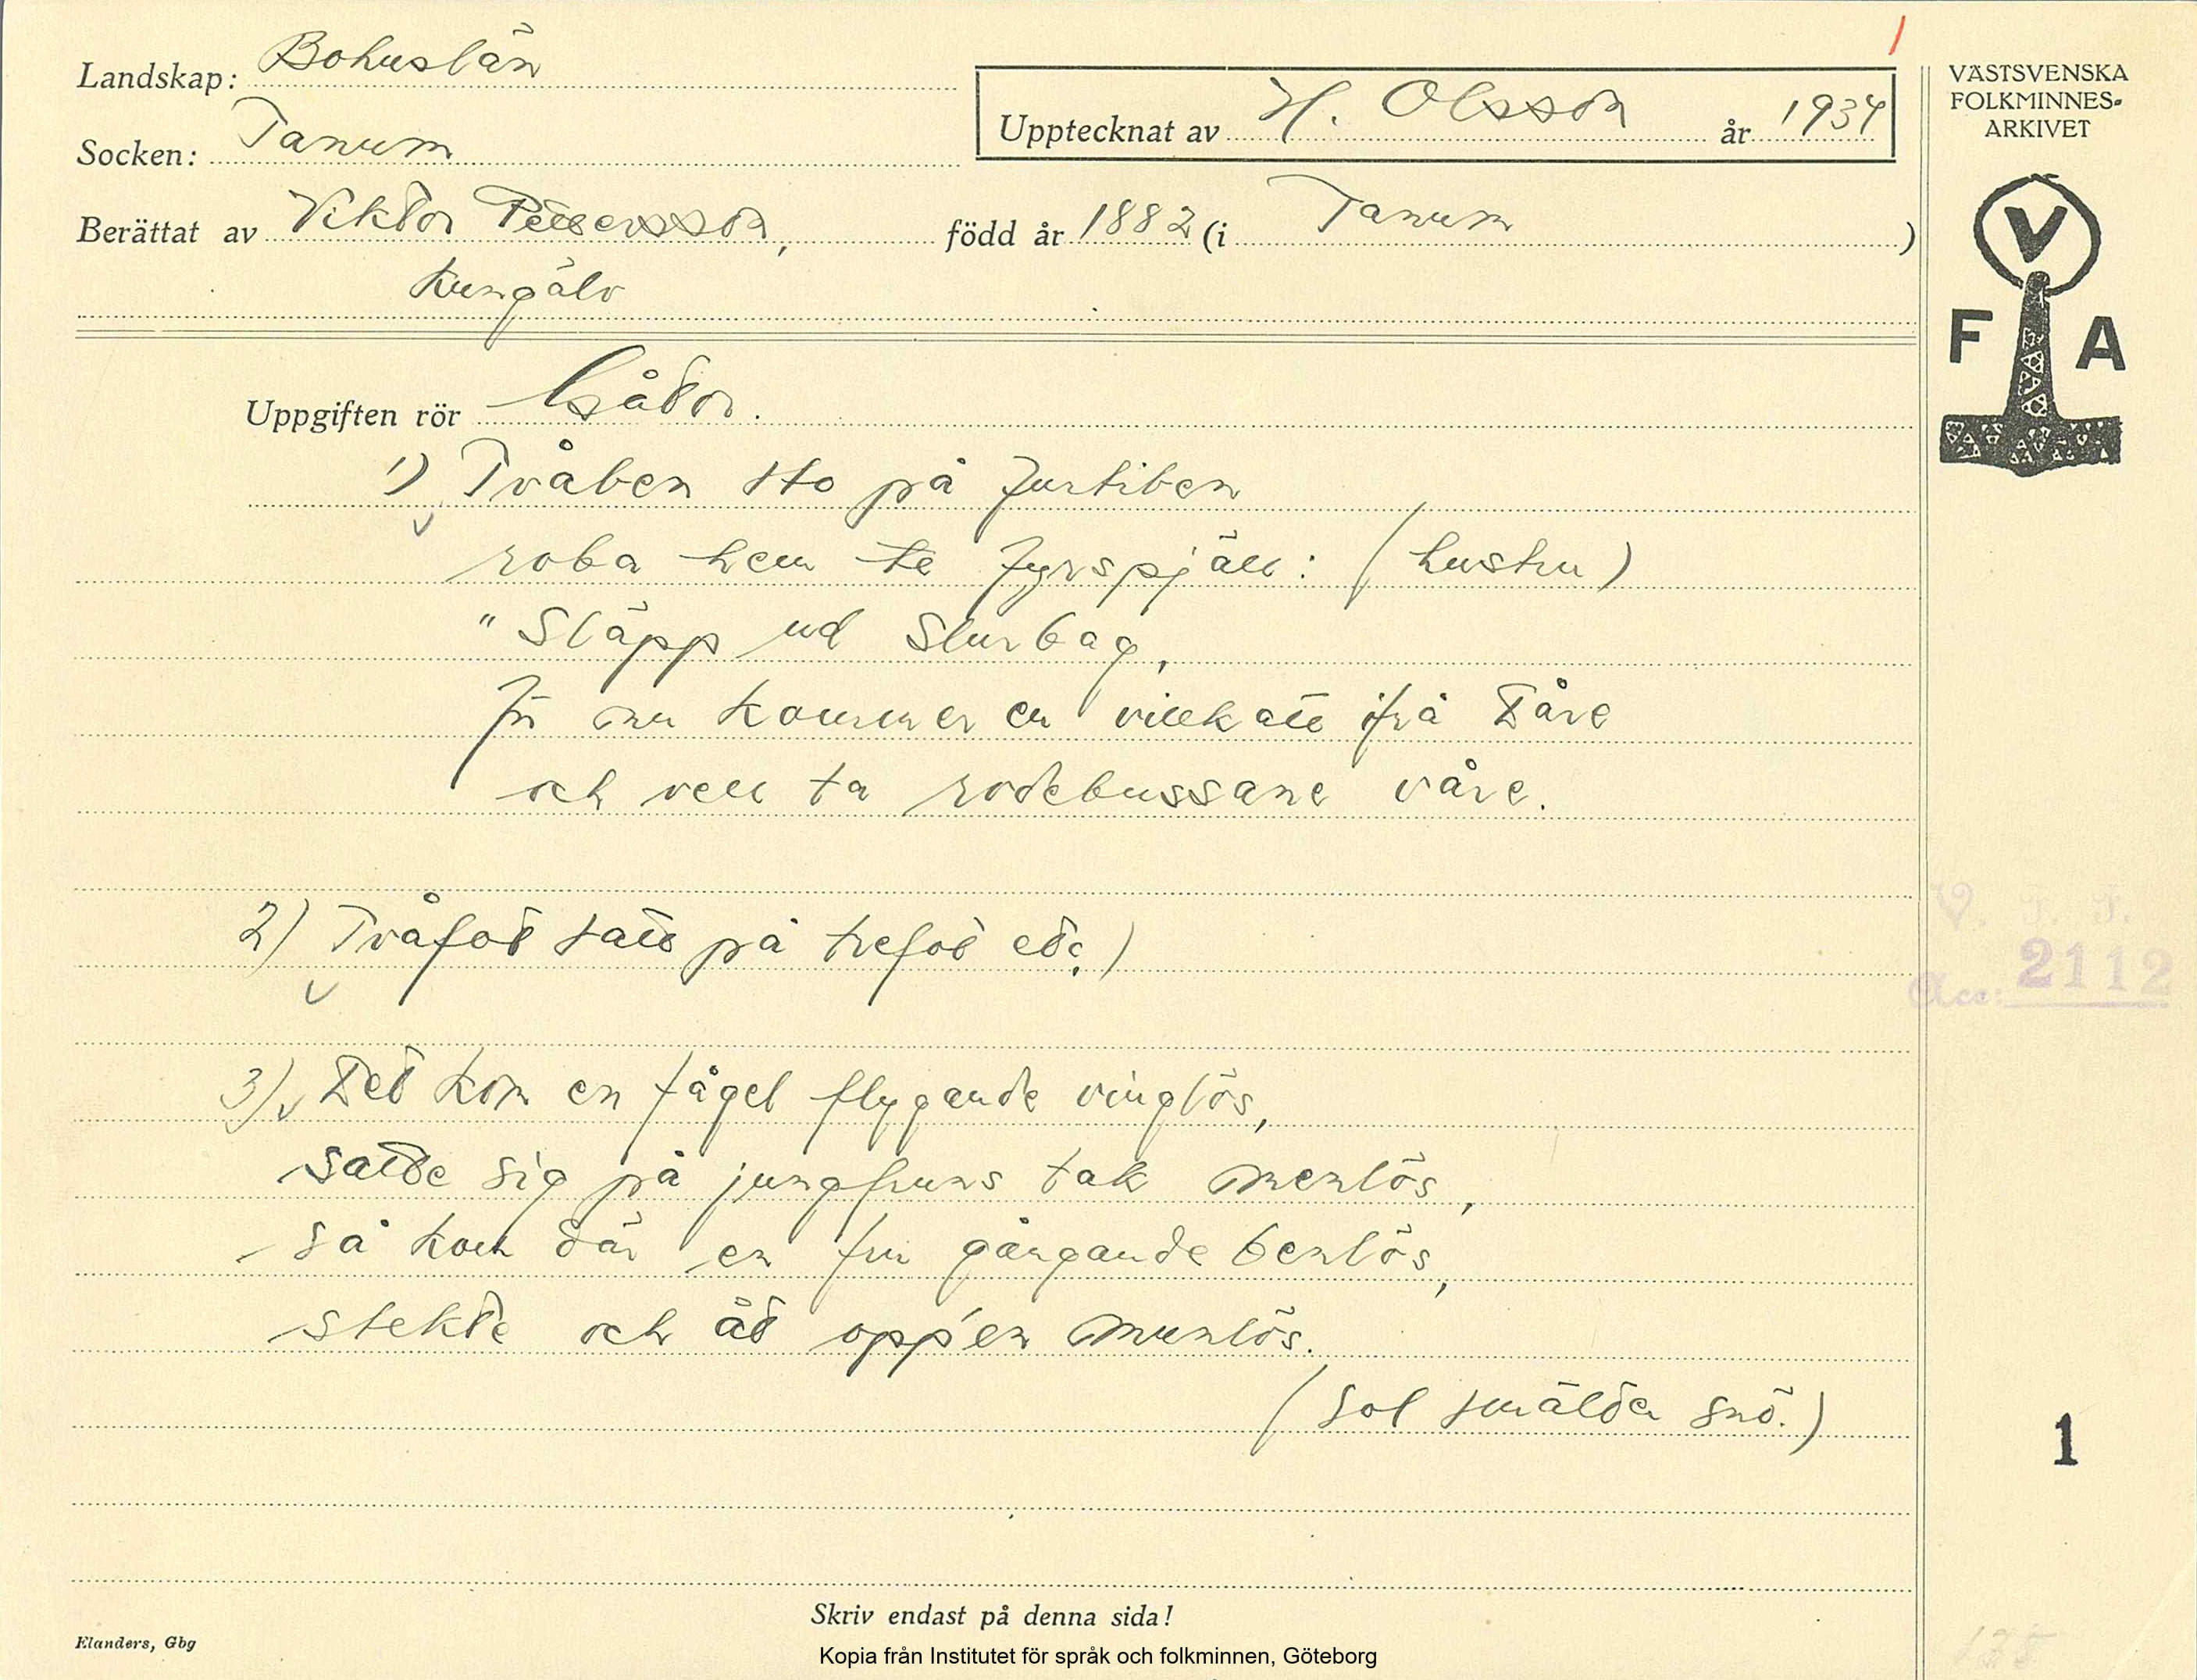 Landskap: Bohuslän
VÄSTSVENSKA
FOLKMINNES-
ARKIVET
Upptecknat av H. Olsson år 1934
Socken: Tanum
Berättat av Viktor Pettersson, född år 1882 (i Tanum)
Kungälv
V
F A
Uppgiften rör Gåtor.
1) Tvåben sto på
roba hem te fyrspjäll: (hustru)
"Släpp ud Slurbag,
för nu kommer en villkatt ifrå Dåre
och vell ta rodebussane våre.
2) Tvåfot satt på trefot etc.)
V. F. F.
Acc: 2112
3) Det kom en fågel flygande vinglös,
satte sig på jungfruns tak menlös,
så kom där en fru gångande benlös,
stekte och åt opp'en munlös.
(Sol smälter snö.)
1
Skriv endast på denna sida!
Elanders, Gbg
Kopia från Institutet för språk och folkminnen, Göteborg